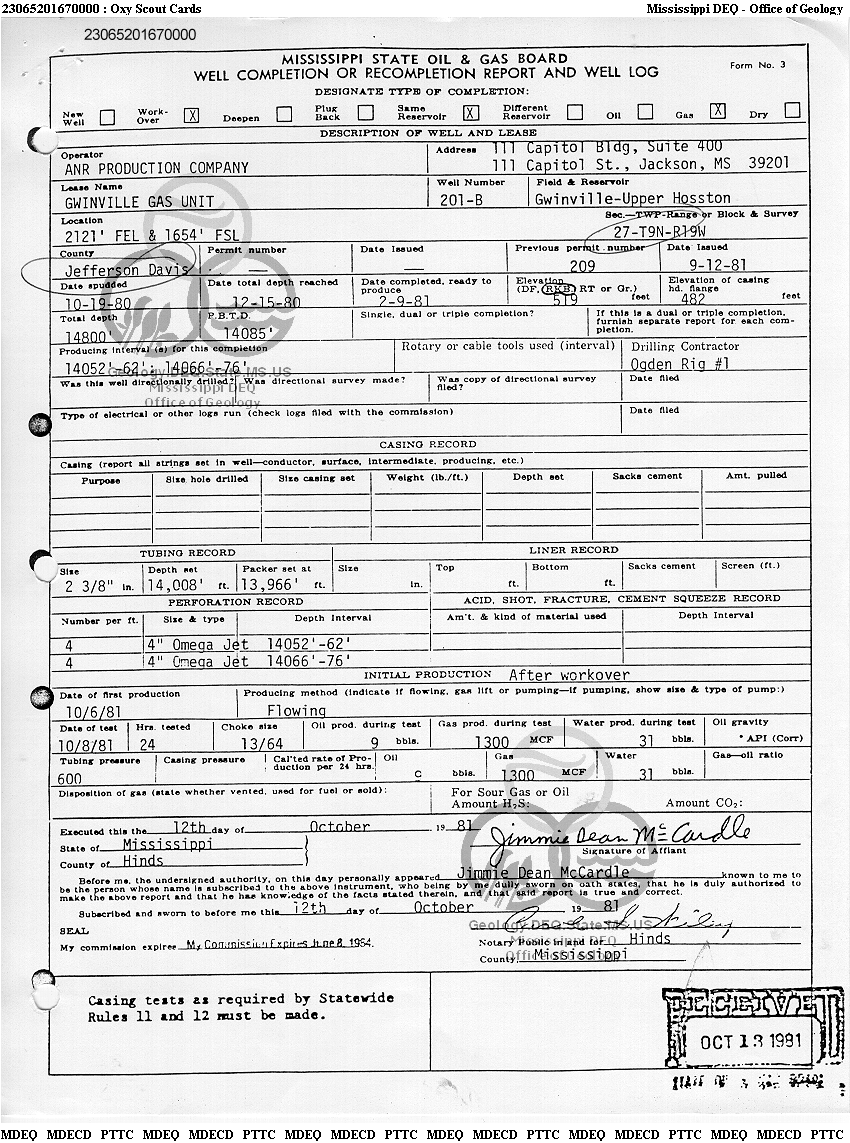 23065201670000 : Oxy Scout Cards Mississippi DEQ - Office of Geology
23065201670000
MISSISSIPPI STATE OIL & GAS BOARD
WELL COMPLETION OR RECOMPLETION REPORT AND WELL LOG Form No. 3
DESIGNATE TYPE OF COMPLETION:
New Well Work-Over X Deepen Plug Back Same Reservoir X Different Reservoir Oil Gas X Dry
DESCRIPTION OF WELL AND LEASE
Operator Address 111 Capitol Bldg, Suite 400
ANR PRODUCTION COMPANY 111 Capitol St., Jackson, MS 39201
Lease Name Well Number Field & Reservoir
GWINVILLE GAS UNIT 201-B Gwinville-Upper Hosston
Location Sec.—TWP-Range or Block & Survey
2121' FEL & 1654' FSL 27-T9N-R19W
County Permit number Date Issued Previous permit number Date Issued
Jefferson Davis — — 209 9-12-81
Date spudded Date total depth reached Date completed, ready to produce Elevation (DF, RKB, RT or Gr.) Elevation of casing hd. flange
10-19-80 12-15-80 2-9-81 519 feet 482 feet
Total depth P.B.T.D. Single, dual or triple completion? If this is a dual or triple completion, furnish separate report for each completion.
14800' 14085'
Producing interval (s) for this completion Rotary or cable tools used (interval) Drilling Contractor
14052'-62'; 14066'-76' Ogden Rig #1
Geology.DEQ.State.MS.US
Was this well directionally drilled? Was directional survey made? Was copy of directional survey filed? Date filed
Mississippi DEQ
Office of Geology
Type of electrical or other logs run (check logs filed with the commission) Date filed
CASING RECORD
Casing (report all strings set in well—conductor, surface, intermediate, producing, etc.)
Purpose Size hole drilled Size casing set Weight (lb./ft.) Depth set Sacks cement Amt. pulled
TUBING RECORD LINER RECORD
Size Depth set Packer set at Size Top Bottom Sacks cement Screen (ft.)
2 3/8" in. 14,008' ft. 13,966' ft. in. ft. ft.
PERFORATION RECORD ACID, SHOT, FRACTURE, CEMENT SQUEEZE RECORD
Number per ft. Size & type Depth Interval Am't. & kind of material used Depth Interval
4 4" Omega Jet 14052'-62'
4 4" Omega Jet 14066'-76'
INITIAL PRODUCTION After workover
Date of first production Producing method (indicate if flowing, gas lift or pumping—if pumping, show size & type of pump:)
10/6/81 Flowing
Date of test Hrs. tested Choke size Oil prod. during test Gas prod. during test Water prod. during test Oil gravity
10/8/81 24 13/64 9 bbls. 1300 MCF 31 bbls. ° API (Corr)
Tubing pressure Casing pressure Cal'ted rate of Production per 24 hrs. Oil Gas Water Gas—oil ratio
600 bbls. 1300 MCF 31 bbls.
Disposition of gas (state whether vented, used for fuel or sold): For Sour Gas or Oil
Amount H2S: Amount CO2:
Executed this the 12th day of October 19 81 Jimmie Dean McCardle
State of Mississippi Signature of Affiant
County of Hinds
Before me, the undersigned authority, on this day personally appeared Jimmie Dean McCardle known to me to
be the person whose name is subscribed to the above instrument, who being by me dully sworn on oath states, that he is duly authorized to
make the above report and that he has knowledge of the facts stated therein, and that said report is true and correct.
Subscribed and sworn to before me this 12th day of October 19 81
SEAL Geology.DEQ.State.MS.US
My commission expires My Commission Expires June 8, 1984. Notary Public in and for Hinds
Mississippi DEQ
County, Mississippi
Office of Geology
Casing tests as required by Statewide
Rules 11 and 12 must be made.
RECEIVED
OCT 13 1981
MDEQ MDECD PTTC MDEQ MDECD PTTC MDEQ MDECD PTTC MDEQ MDECD PTTC MDEQ MDECD PTTC MDEQ MDECD PTTC